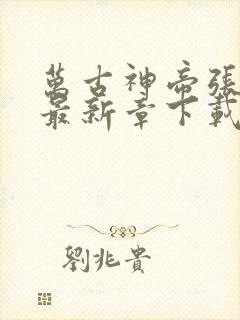 萬古神帝張
最新章下載
劉兆貴